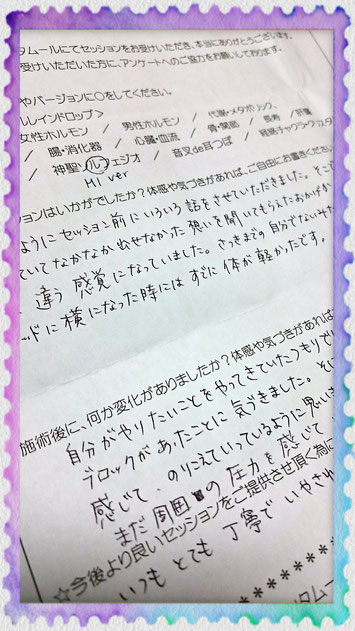 タムールにてセッションをお受けいただき、本当にありがとうございます。
受けいただいた方に、アンケートへのご協力をお願いしております。
やバージョンに○をしてください。
レインドロップ>
女性ホルモン / 男性ホルモン / 代謝・メタボリック、
/ 腸・消化器 / 心臓・血流 / 骨・関節 / 長寿 / 肝臓
/ 神聖ソルフェジオ / 音叉de耳つぼ / 経絡チャクラ
MI ver
ションはいかがでしたか?体感や気づきがあれば、ご自由にお書きください
ようにセッション前にいろいろ話をさせていただきました。そこで
ていてなかなか出せなかった想いを聞いてもらえたおかげか
違う感覚になっていました。さっきまでの自分でないみた
ッドに横になった時にはすでに体が軽かったです。
施術後に、何か変化がありましたか?体感や気づきがあれば
自分がやりたいことをやってきていたつもりで
ブロックがあったことに気づきました。そ
感じて、のりこえていっているように思い
まだ周囲の圧力を感じて
☆今後より良いセッションをご提供させて頂く為に
いつもとても丁寧でいやされ
タムー